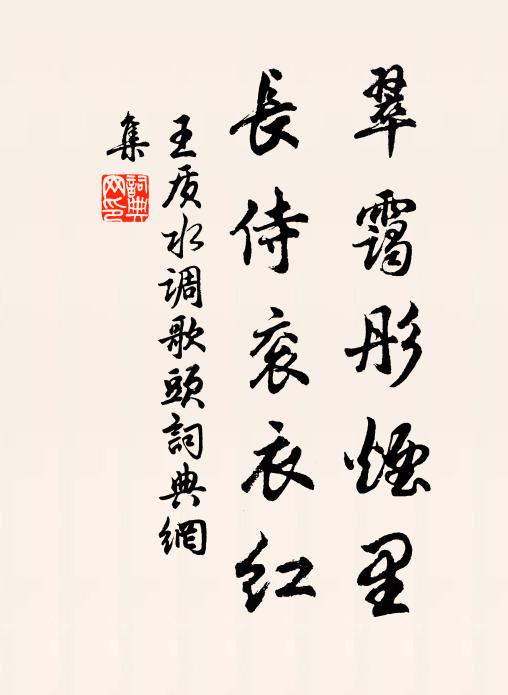 翠霭彤煙里
長侍衮衣红
王质水调歌頭詞典網
集
詞典
网印